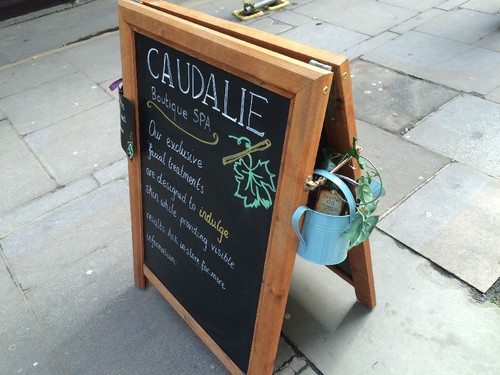 CAUDALIE
Boutique SPA
Our exclusive
facial treatments
are designed to indulge
skin while providing visible
results. Ask in store for more
information.